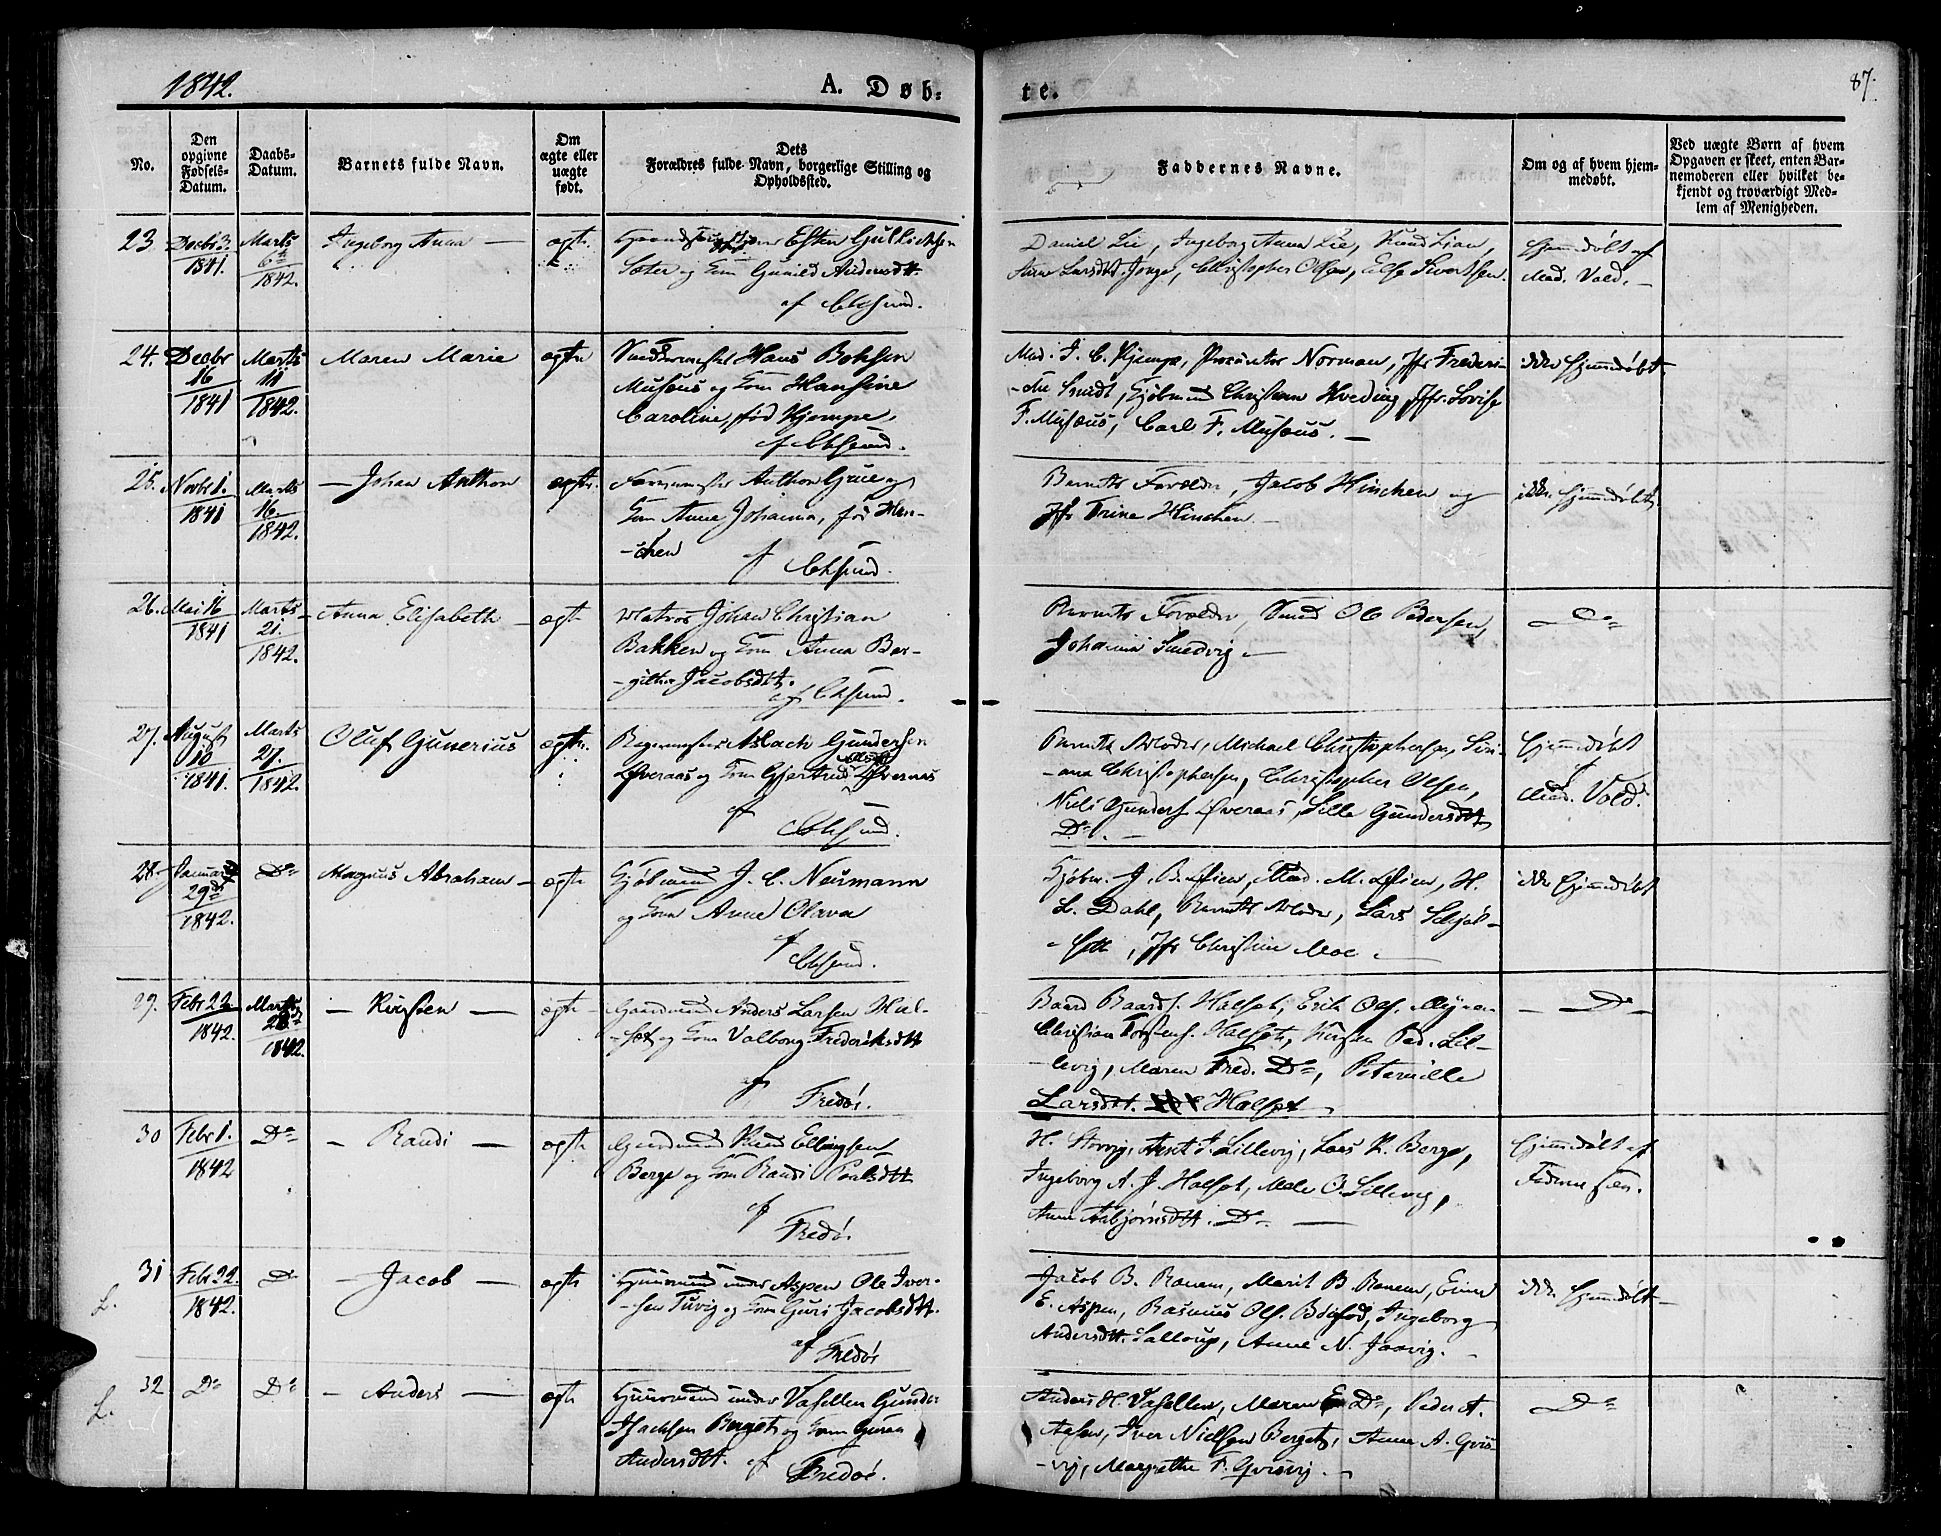 1842.
A. Døb-
te.
87.
No.
Den opgivne Fødsels-Datum.
Daabs-Datum.
Barnets fulde Navn.
Om ægte eller uægte født.
Dets Forældres fulde Navn, borgerlige Stilling og Opholdssted.
Faddernes Navne.
Om og af hvem hjemmedøbt.
Ved uægte Børn af hvem Opgaven er skeet, enten Barnemoderen eller hvilket bekjendt og troværdigt Medlem af Menigheden.
23 Decbr 3. 1841. Marts 6te 1842. Ingeborg Anna — ægte
Esten Gullichsen
Sæter og Kone Gunild Andersdtt
af Chsund.
Daniel Lie, Ingeborg Anna Lie, Knud Lian,
Anne Larsdtt Jonge, Christopher Olsen, Else Sivertsen.
hjemmedøbt af
Mad. Vold. —
24. Decbr 16 1841 Marts 11 1842. Maren Marie ægte
Hans Boysen
Musæus og Kone Hansine
Caroline, fød Kjempe,
af Chsund.
Mad. J. C. Kjempe, Norman, Jfr Frederi-
Smidt, Kjøbmand Christian Hveding, Jfr. Lovise
F. Musæus, Carl F. Musæus. —
ikke hjemmedøbt
25. Novbr 1. 1841 Marts 16 1842. — Johan Anthon ægte.
Anthon Grue og
Kone Anne Johanna, fød Hin-
-chen af Chsund.
Barnets Forældre, Jacob Hinchen og
Jfr Trine Hinchen. —
ikke hjemmedøbt.
26. Mai 16 1841 Marts 21. 1842. Anna Elisabeth — ægte
Matros Johan Christian
Bakken og Kone Anna Ber-
-githa Jacobsdtt.
af Chsund.
Barnets Forældre, Knud Ol Pedersen,
Johanna Smedvig. —
— Do
27. August 10 1841. Marts 27. 1842. Oluf Gunerius ægte.
Aslach Gundersen
Øveraas og Kone Gjertrud Øveraas
af
Chsund.
Barnets Moder, Michael Christophersen,
Christophersen, Christopher Olsen,
Niels Gunders. Øveraas, Sille Gundersdtt
Do. —
hjemmedøbt
af
Mad. Vold.
28. Januar 29de 1842. Do Magnus Abraham — ægte
Kjøbmand J. C. Neumann
og Kone Anne Olava
af
Chsund.
Kjøbm. J. B. Øien, Mad. M. Øien, H.
L. Dahl, Barnets Moder, Lars
Jfr Christine Moe —
ikke hjemmedøbt
29. Febr 22 1842. Marts 28de 1842 — Kirsten — ægte
Gaardmand Anders Larsen Hal-
-set og Kone Valborg Frederiksdtt
af
Fredøe.
Baard Baards. Halset, Erik Ols.
Christian Halset, Kirsten Ped. Lil-
-levig, Maren Fred. Do, Peternille
Larsdtt. Halset
— Do —
30 Febr 1. 1842 Do — Randi — ægte
Gaardmand Knud Ellingsen
Berge og Kone Randi Poulsdtt
af
Fredøe.
H. Storvig, Arnt J. Lillevig, Lars K. Berge,
Ingeborg A. J. Halset, Male O. Lillevig,
Anne Asbjørnsdtt. Do. —
hjemmedøbt af
31 Febr 22. 1842. Do — Jacob — ægte
L.
Huusmand under Aspen Ole Iver-
-sen Tuvig og Kone Guri Jacobsdtt.
af Fredøe
Jacob B. Ranem, Marit B. Ranem,
E. Aspen, Rasmus Ols. Ingeborg
Andersdtt. Anne N.
ikke hjemmedøbt —
32 Do Do — Anders — ægte
L.
Huusmand under Vasellen Gunder
Isachsen Berget og Kone Guraa
Andersdtt. af Fredøe.
Anders H. Vasellen, Maren E Do, Peder A.
Aasen, Iver Nielsen Berget, Anne A. Qvis-
-vig, Margrethe F. Qvisvig. —
— Do —